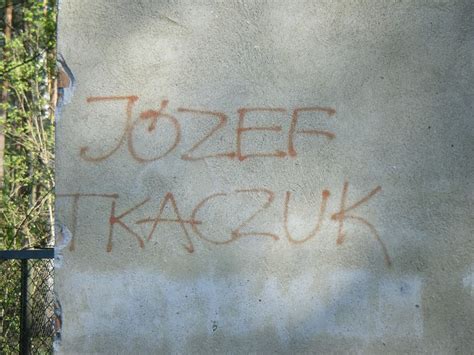 JÓZEF
TKACZUK